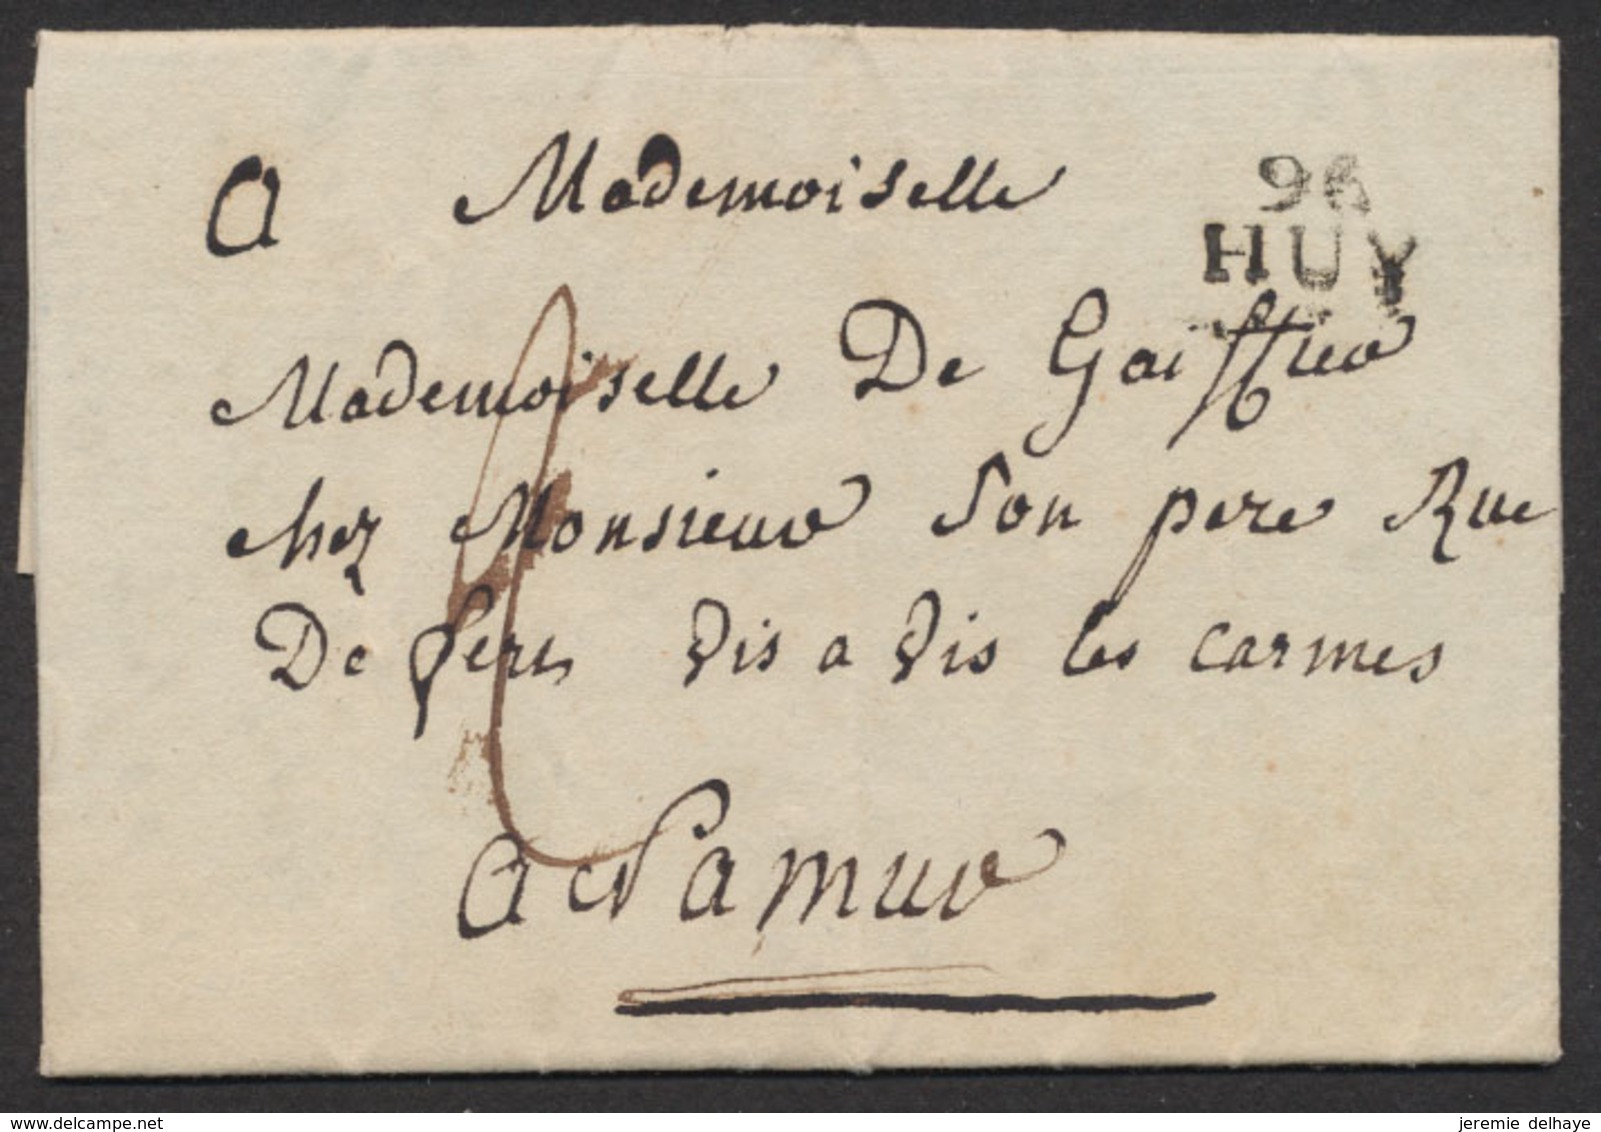 a Mademoiselle
96
HUY
Mademoiselle De Gaiffier
chez Monsieur son pere Rue
De fers vis a vis les carmes
a Namur
jeremie delhaye